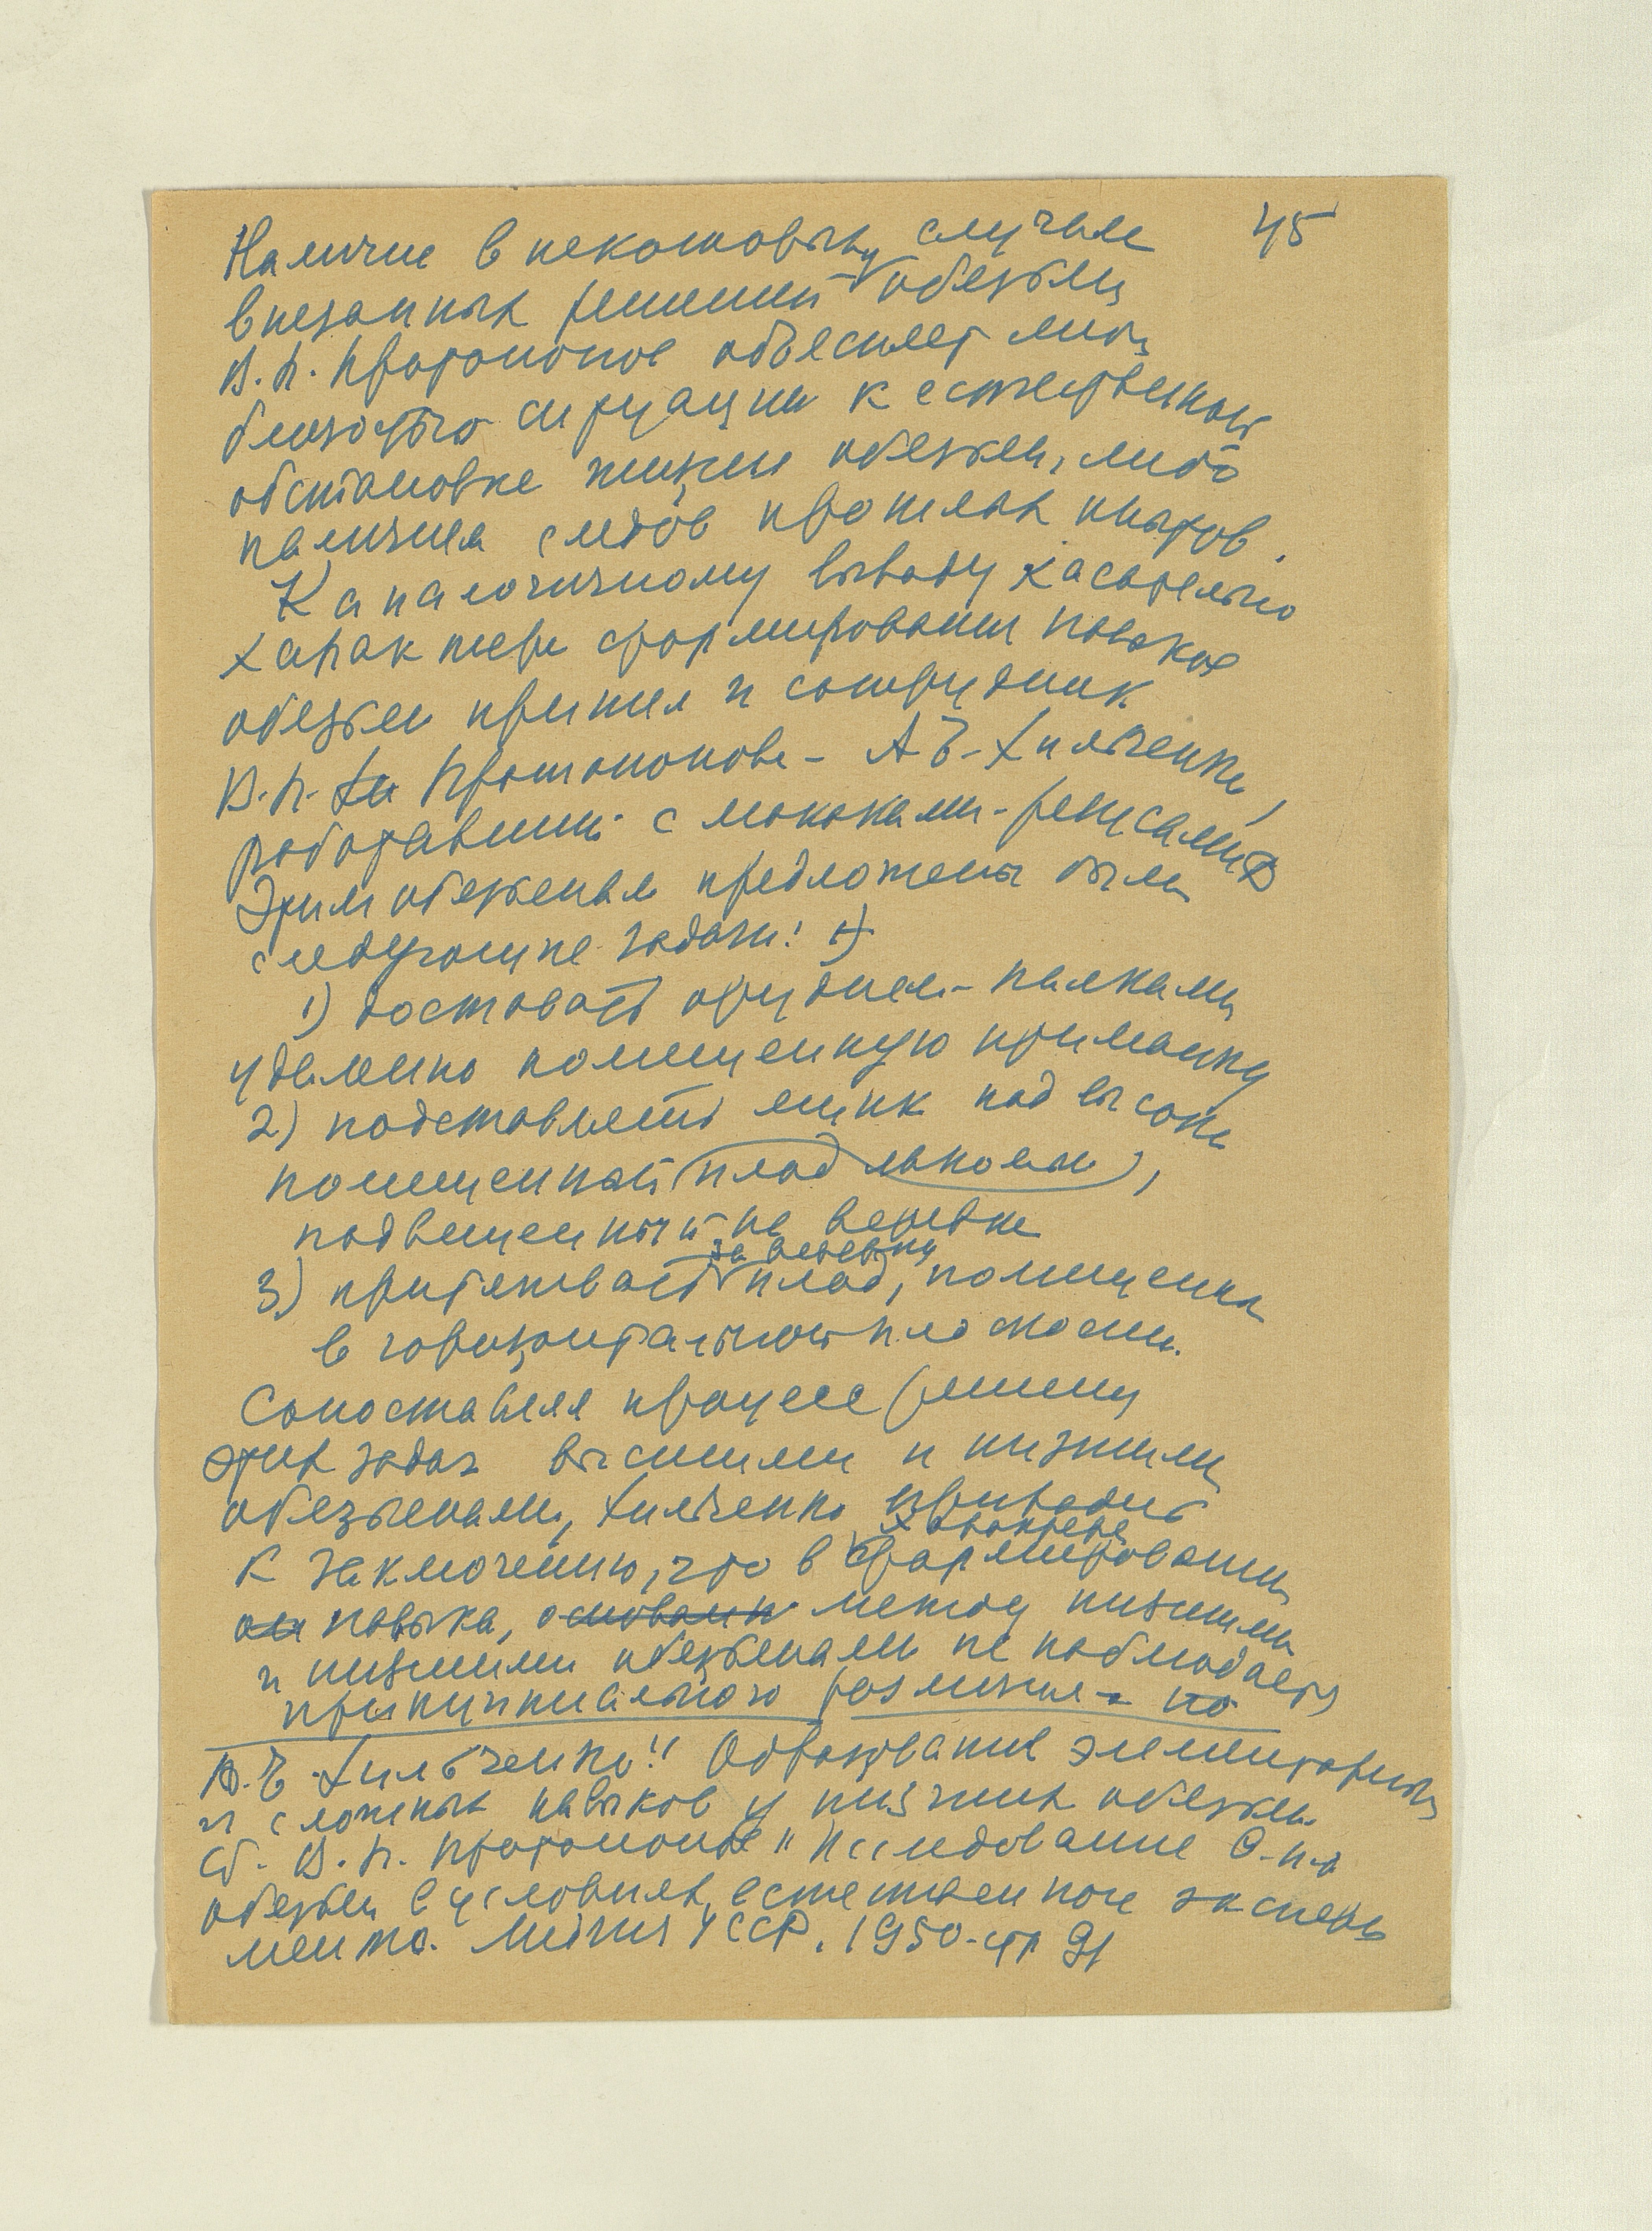 45
Наличие в некоторых случаях
внезапных решений у обезьян
В.П. Протопопов объясняет либо
близостью ситуации к естественной
обстановке жизни обезьян, либо
наличием следов прошлых опытов.
К аналогичному выводу касательно
характера формирования навыков
обезьян пришел и сотрудник
В.П. Протопопова - А.Е. Хильченко,
работавший с макаками-резусами
Этим обезьянам предложены были
следующие задачи:
1) доставать орудием - палками
удаленно помещенную приманку
2) подставлять ящик под высоко
помещенный плод лакомый,
подвешенный на веревке
3) притягивать за веревку плод, помещенный
в горизонтальной плоскости.
Сопоставляя процесс решения
этих задач высшими и низшими
обезьянами, Хильченко приводит
к заключению, что в характере формирования
навыка, основании между низшими
и низшими обезьянами не наблюдается
принципиального различия
А.Е. Хильченко "Образование элементарных
и сложных навыков у низших обезьян
Сб. В.П. Протопопов "Исследование В.н.д
обезьян в условиях естественного экспери
мента. УССР. 1950 - стр 91